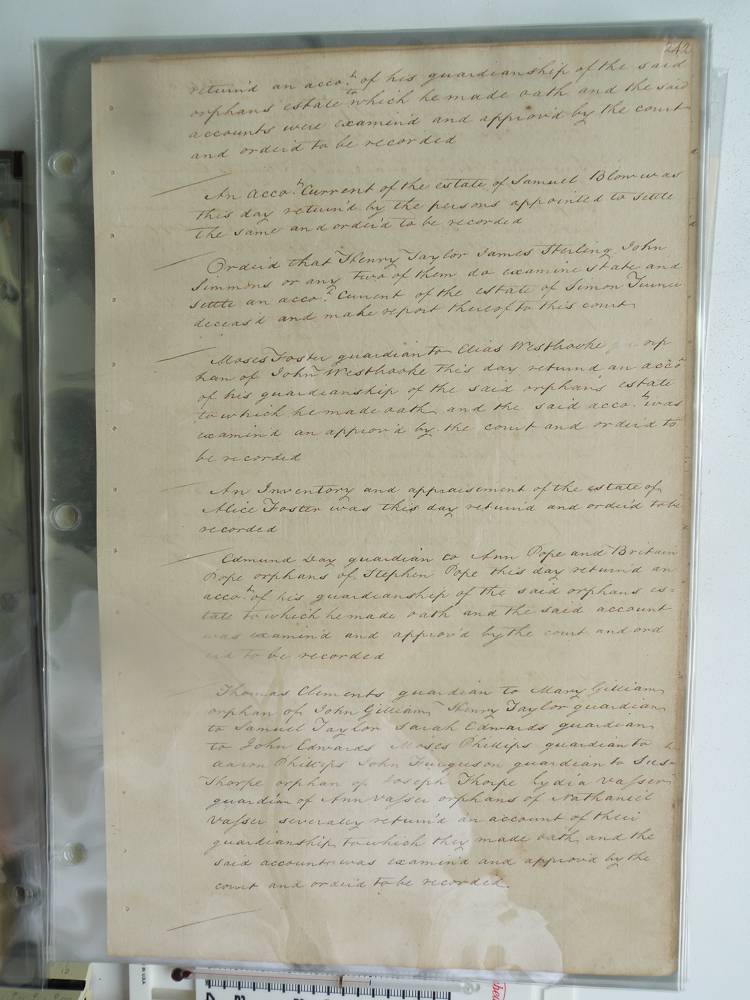 242
return'd an acco.t of his guardianship of the said
orphans estate to which he made oath and the said
accounts were examin'd and approv'd by the court
and order'd to be recorded
An Acco.t Current of the estate of Samuel Blow was
this day return'd by the persons appointed to settle
the same and order'd to be recorded
Order'd that Henry Taylor James Sterling John
Simmons or any two of them do examine state and
settle an acco.t Current of the estate of Simon Turner
deceas'd and make report thereof to this court
Moses Foster guardian to Elias Westbrooke orp
han of John Westbrooke this day return'd an acco
of his guardianship of the said orphans estate
to which he made oath and the said acco.t was
examin'd an approv'd by the court and order'd to
be recorded
An Inventory and appraisement of the estate of
Alice Foster was this day return'd and order'd to be
recorded
Edmund Day guardian to Ann Pope and Britain
Pope orphans of Stephen Pope this day return'd an
acco.t of his guardianship of the said orphans es=
tate to which he made oath and the said account
was examin'd and approv'd by the court and ord
er'd to be recorded
Thomas Clements guardian to Mary Gilliam
orphan of John Gilliam Henry Taylor guardian
to Samuel Taylor Sarah Edwards guardian
to John Edwards Moses Phillips guardian to
Aaron Phillips John Furguson guardian to
Thorpe orphan of Joseph Thorpe Lydia Vasser
guardian of Ann Vasser orphans of Nathaniel
Vasser severaley return'd an account of their
guardianship to which they made oath and the
said accounts was examin'd and approv'd by the
court and order'd to be recorded.